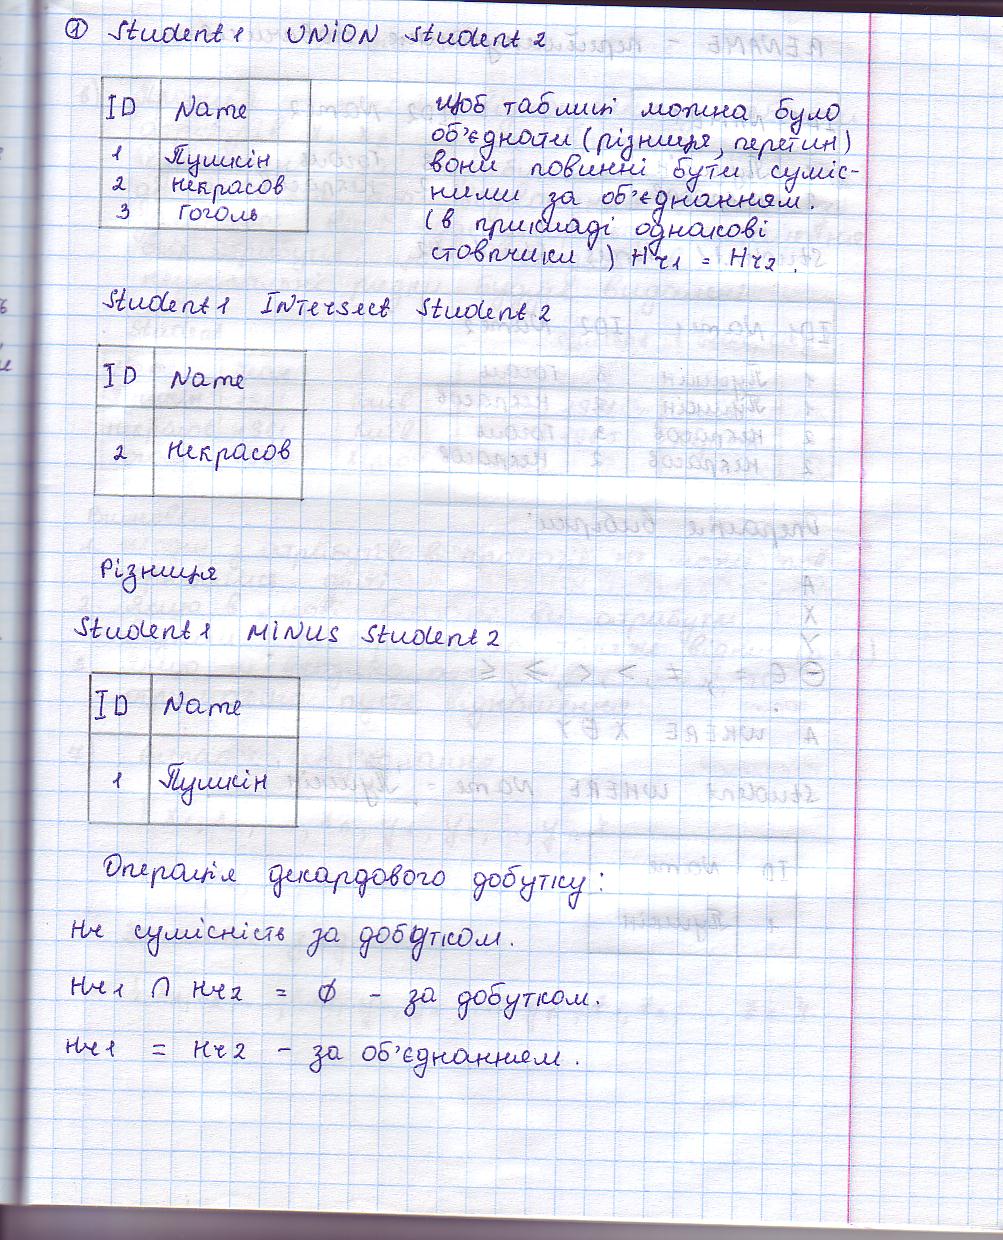 ① Student1 UNION Student2
ID Name
1 Пушкін
2 Некрасов
3 Гоголь
Щоб таблиці можна було
об'єднати (різниця, перетин)
вони повинні бути суміс-
ними за об'єднанням.
(в прикладі однакові
стовпчики) Hr1 = Hr2.
Student1 Intersect Student2
ID Name
2 Некрасов
Різниця
Student1 MINUS Student2
ID Name
1 Пушкін
Операція декардового добутку:
Не сумісність за добутком.
Hr1 ∩ Hr2 = ∅ - за добутком.
Hr1 = Hr2 - за об'єднанням.